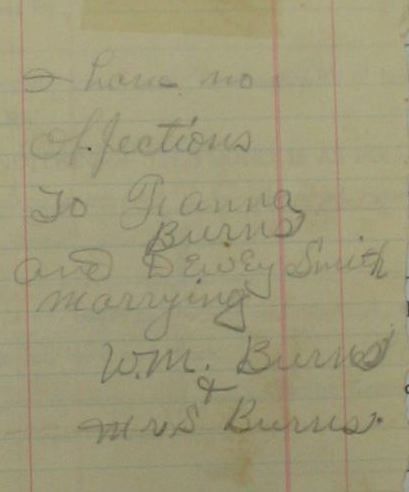 I have no
objections
To Hanna
Burns
and Dewey Smith
marrying
W.M. Burns
&
Mrs Burns.